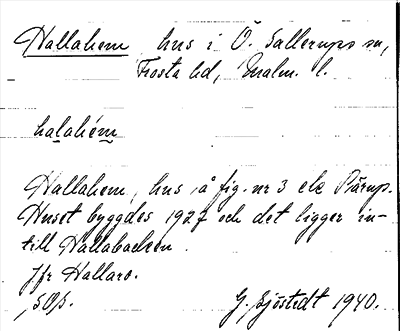 Hallahem hus i Ö. Sallerups sn,
Frosta hd, Malm. l.
halahém
Hallahem, hus å fig. nr 3 ele Pärup.
Huset byggdes 1927 och det ligger in-
till Hallabacken.
Jfr Hallaro.
G. Sjöstedt 1940.